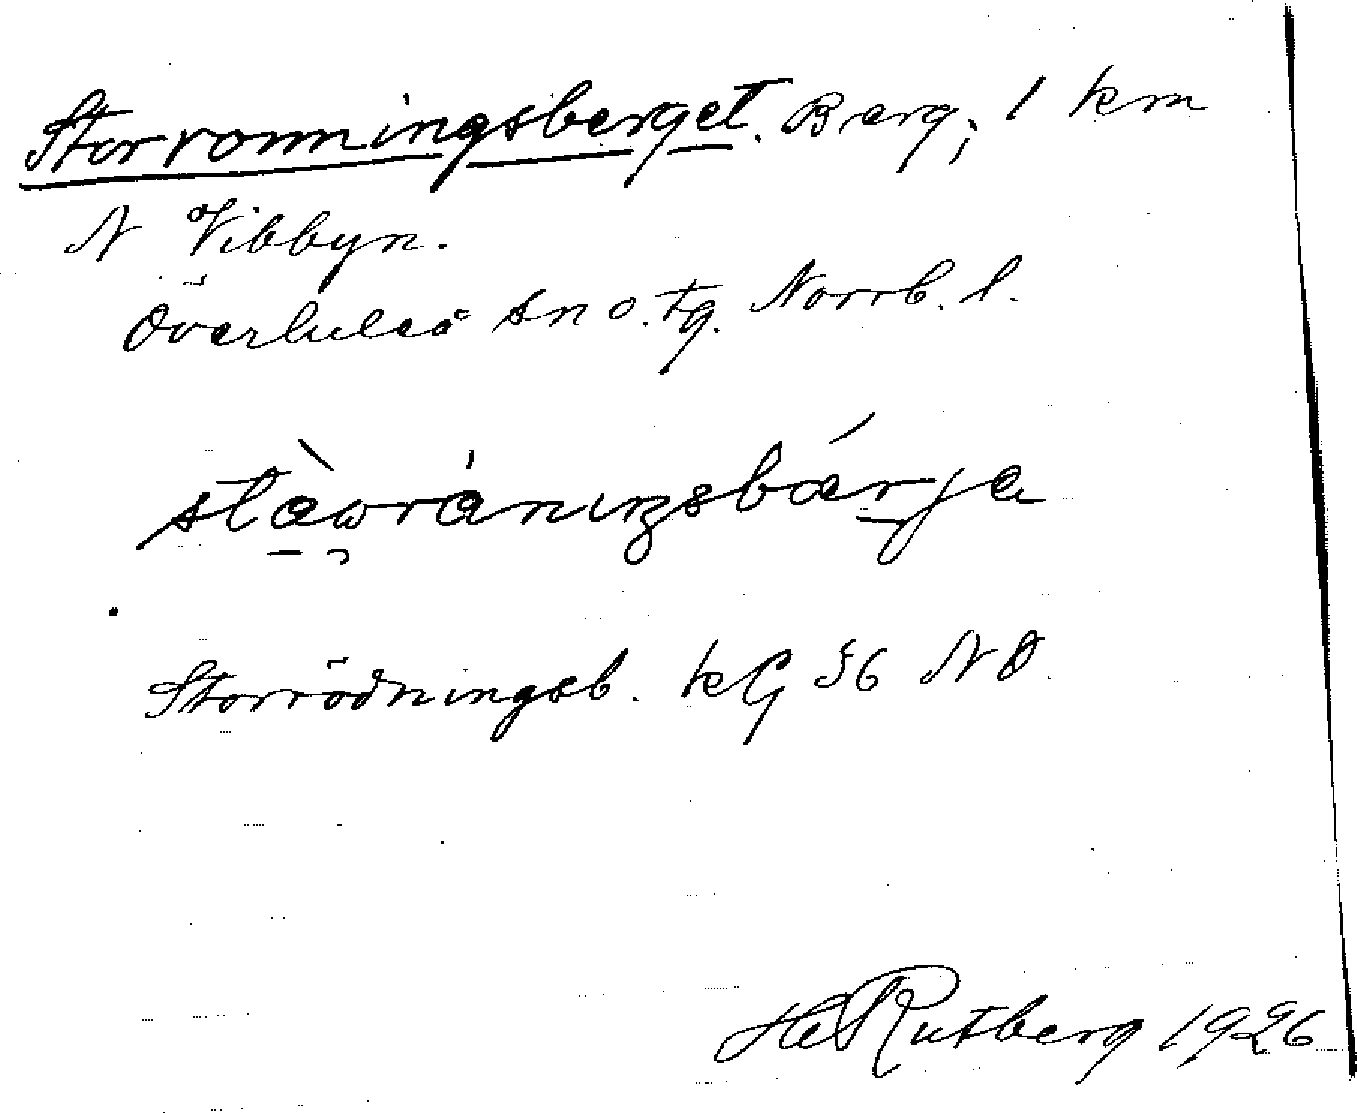 Storronningsberget. Berg; 1 km
N Vibbyn.
Överluleå sn o. tg. Norrb. l.
Storrödningsb. kG 36 NO
HeRutberg 1926